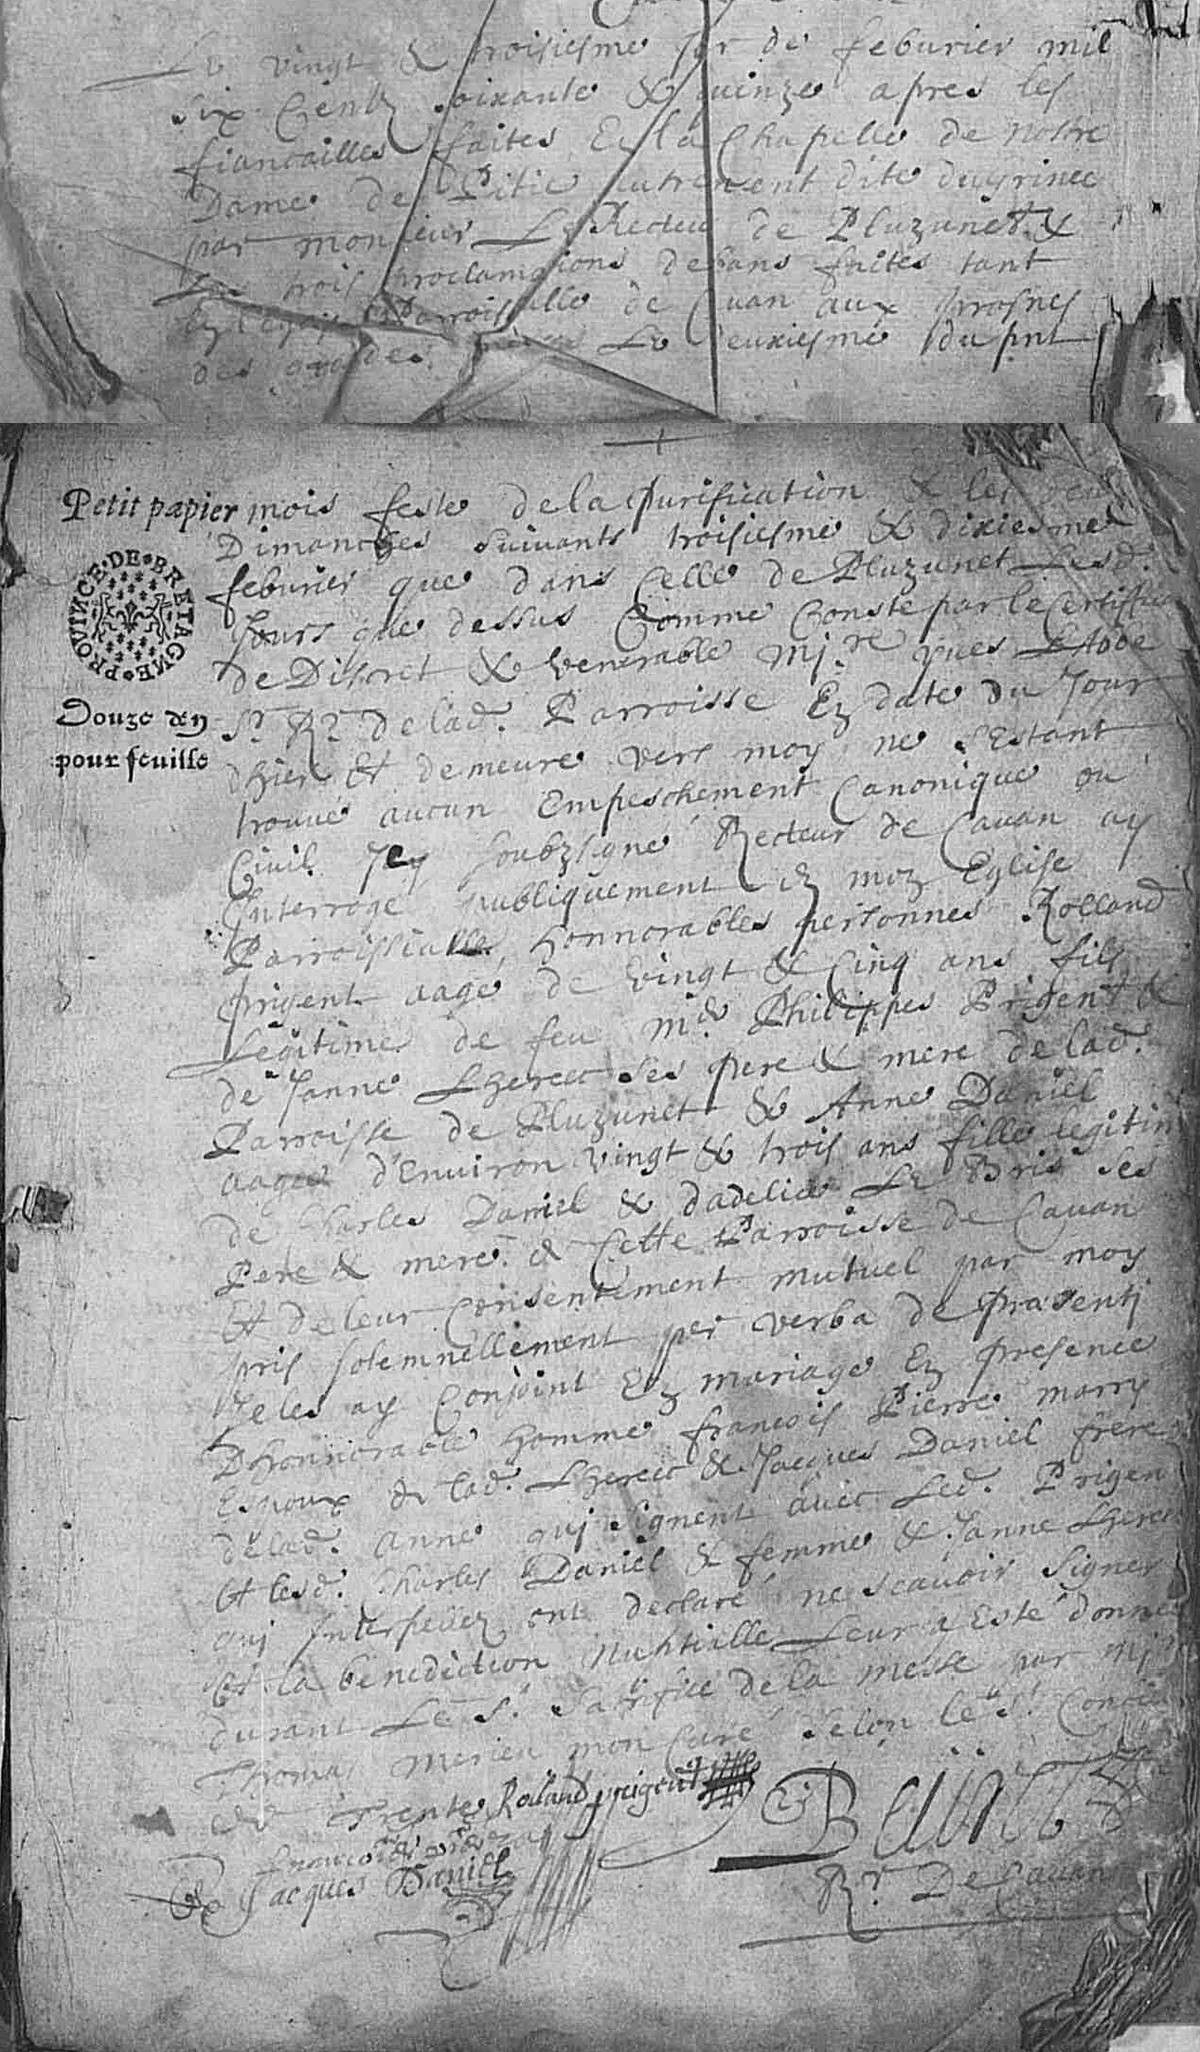 Le vingt & troisiesme jor de feburier mil
six Centz soixante & quinze apres les
fiancailles faites En la Chapelle de notre
Dame de Pitie autrement dite
par monsieur Le Recteur de Pluzunet &
Les trois proclamations de bans faites tant
En l'eglise Parroissialle de Cauan aux prosnes
des grandes Le deuxiesme du pnt
Petit papier
PROVINCE DE BRETAGNE
Douze den
pour feuille
mois feste de la Purification & les deux
Dimanches suiuants troisiesme & dixiesme
feburier que dans Celle de Pluzunet Lesd.
Jours que dessus Comme Conste par le Certifficat
de Discret & Venerable Mi.re yues L'Abbe
Sr. Rr. de lad. Parroisse En date du Jour
dhier Et demeure vers moy ne s'Estant
trouué aucun Empeschement Canonique ou
Ciuil Je soubzsigné Recteur de Cauan ay
Interrogé publiquement En mon Eglise
Parroissialle, honnorables personnes Rolland
prigent aagé de vingt & Cinq ans fils
Legitime de feu Philippes Prigent &
de Janne Lherec ses pere & mere de lad.
Parroisse de Pluzunet & Anne Daniel
aagee d'Enuiron vingt & trois ans fille legitime
de Charles Daniel & dadelice Le Bris ses
Pere & mere de Cette Parroisse de Cauan
Et de leur Consentement mutuel par moy
pris solemnellement per verba de præsenti
Je les ay Conjoint En mariage En presence
Dhonnorable homme francois Pierre marry
Espoux de lad. Lherec & Jacques Daniel frere
de lad. Anne qui signent auec Led. Prigent
Et lesd. Charles Daniel & femme & Janne Lherec
qui Interpellez ont declaré ne scauoir signer
Et la benediction Nuptialle Leur a Esté donnee
durant Le St. Sacrifice de la messe par Mi
Thomas Merien mon Curé selon le St. Concile
de Trente Rolland prigent
francois
Jacques Daniel
Rr. De Cauan